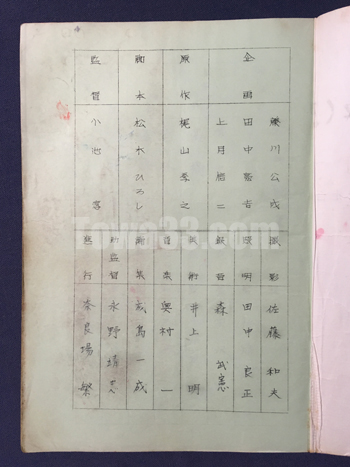 企画
藤川公成
田中審吉
上月信二
原作
梶山季之
脚本
松木ひろし
監督
小池喜
撮影 佐藤和夫
照明 田中良正
録音 森武憲
美術 井上明
音楽 奥村一
編集 成島一成
助監督 永野靖忠
進行 奈良場繁
Toyo33.com